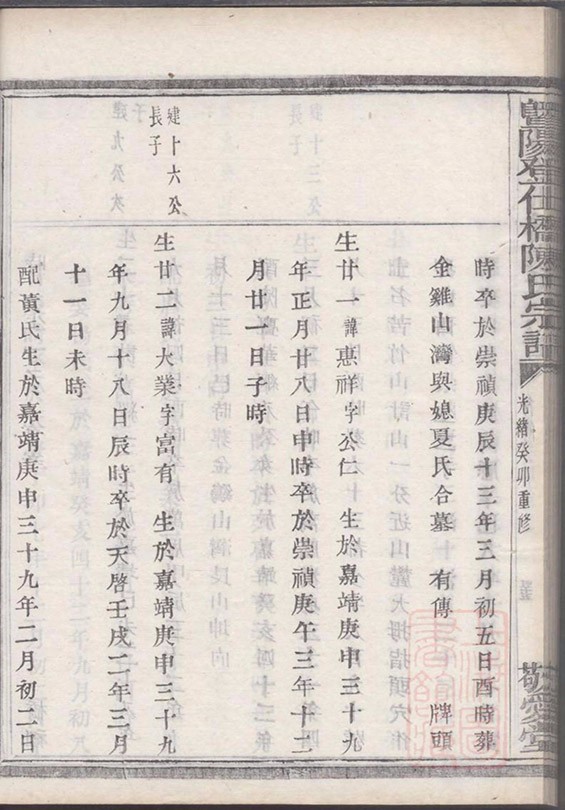 暨陽登仕橋陳氏宗譜
光緒癸卯重修
敬愛堂
時卒於崇禎庚辰十三年三月初五日酉時葬
金雞山灣與媳夏氏合墓 有傳 牌頭
生廿一諱惠禎字公仁 生於嘉靖庚申三十九
年正月廿八日申時卒於崇禎庚午三年十二
月廿一日子時
建十六公
長子
生廿二諱大業字富有 生於嘉靖庚申三十九
年九月十八日辰時卒於天啓壬戌二年三月
十一日未時
配黃氏生於嘉靖庚申三十九年二月初二日